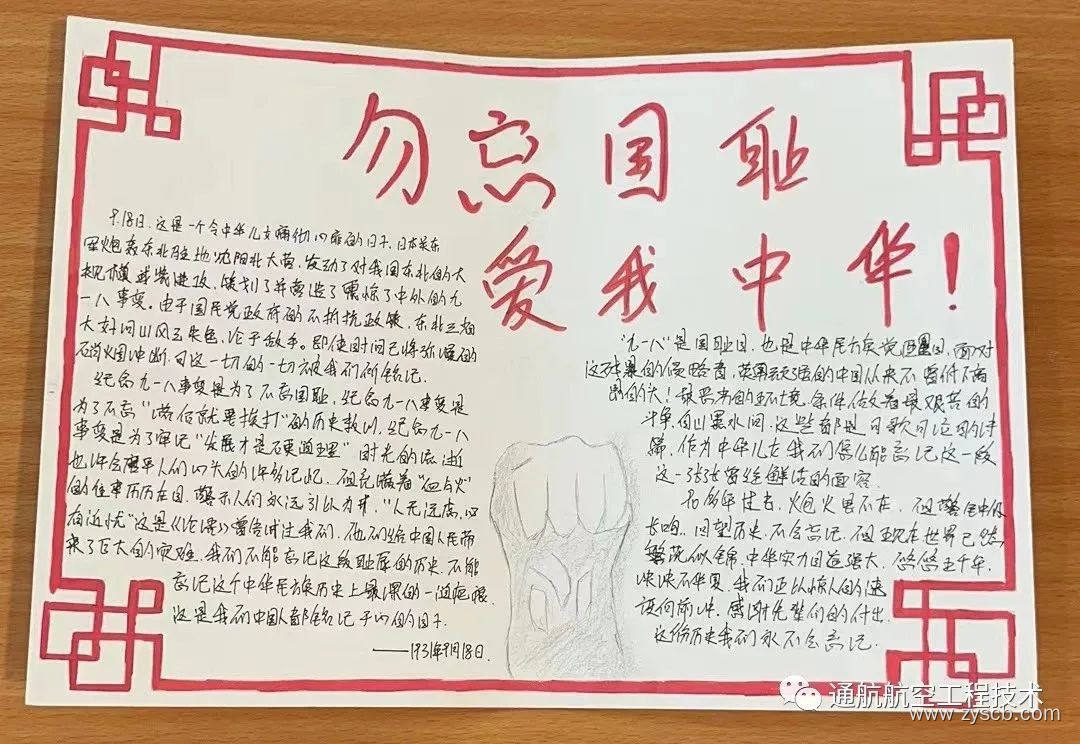 勿忘国耻
爱我中华!
9.18日,这是一个令中华儿女痛彻心扉的日子,日本关东
军炮轰东北驻地沈阳北大营,发动了对我国东北的大
规模武装进攻,策划了并营造了震惊了中外的九
一八事变。由于国民党政府的不抵抗政策,东北三省
大好河山风云失色,沦于敌手。即使时间已将弥漫的
硝烟冲断,可这一切的一切被我们所铭记。
纪念九一八事变是为了不忘国耻,纪念九一八事变是
为了不忘“落后就要挨打”的历史教训,纪念九一八
事变是为了牢记“发展才是硬道理”时光的流逝
也许会磨平人们心头的许多记忆,但充满着“血与火”
的往事历历在目,警示人们永远引以为戒,“人无远虑,必
有近忧”这是《论语》曾告诫过我们,他们给中国人民带
来了巨大的灾难,我们不能忘记这段耻辱的历史,不能
忘记这个中华民族历史上最深的一道疤痕
这是我们中国人都铭记于心的日子.
——1931年9月18日.
“九一八”是国耻日,也是中华民族觉醒日,面对
这残暴的侵略者,英勇顽强的中国从来不曾低下高
昂的头!最恶劣的环境,条件依着最艰苦的
斗争,白山黑水间,这些都是可歌可泣的诗
篇,作为中华儿女我们怎么能忘记这一段
这一张张曾经鲜活的面容
多少年过去,炮火虽不在,但警钟
长鸣,回望历史,不会忘记,但现在世界已然
繁荣似锦,中华实力日益强大,悠悠五千年,
泱泱不华夏,我们正以惊人的速
度向前冲,感谢先辈们的付出
这份历史我们永不会忘记.
通航航空工程技术
www.zyscb.com